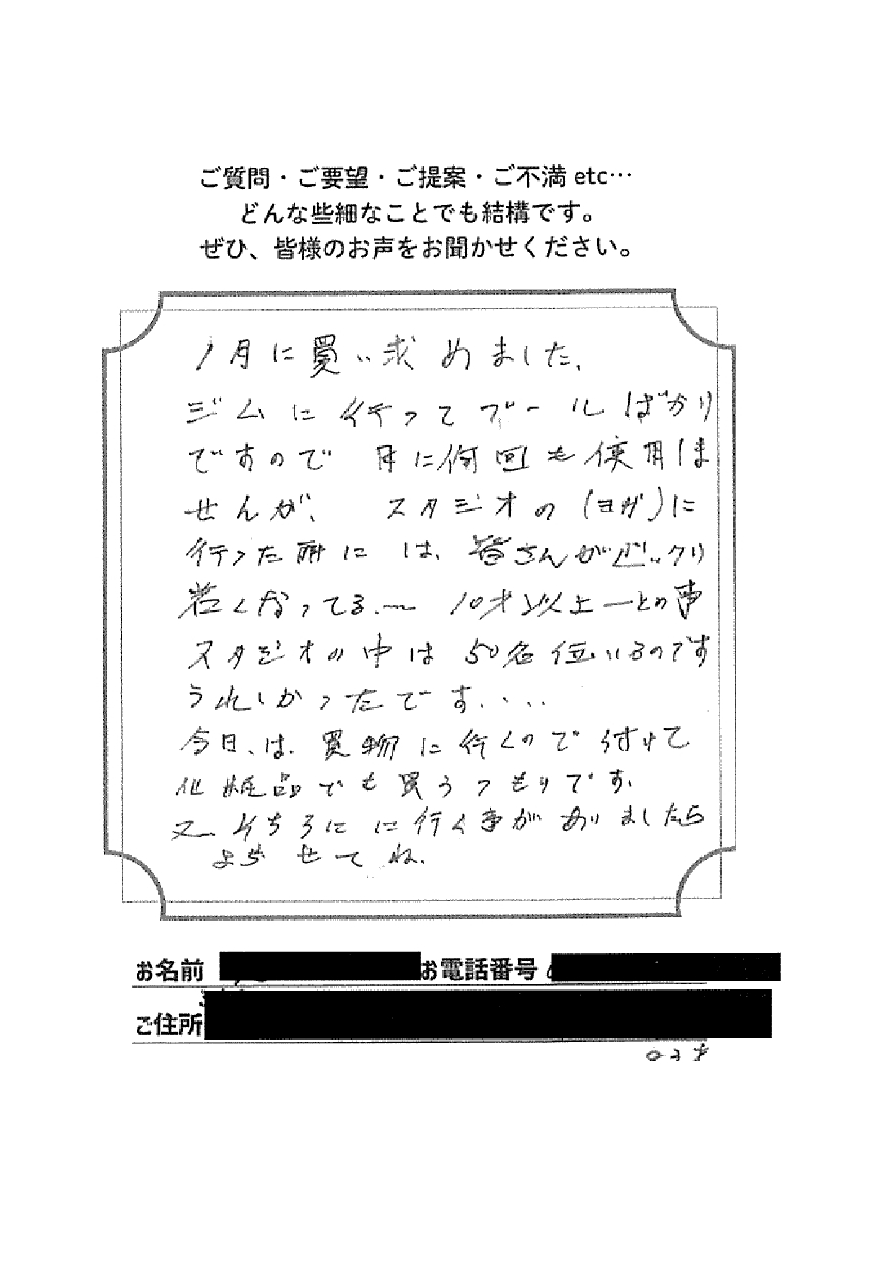 ご質問・ご要望・ご提案・ご不満 etc…
どんな些細なことでも結構です。
ぜひ、皆様のお声をお聞かせください。
1月に買い求めました、
ジムに行ってプールばかり
ですので 月に何回も使用しま
せんが、 スタジオの(ヨガ)に
行った時には、皆さんがビックリ
若くなってる〜 10才以上ーとの声
スタジオの中は 50名位いるのです
うれしかったです・・・
今日、は、買物に行くので 付けて
化粧品でも買うつもりです、
又、そちらにに行く事がありましたら
よらせてね、
お名前 お電話番号
ご住所